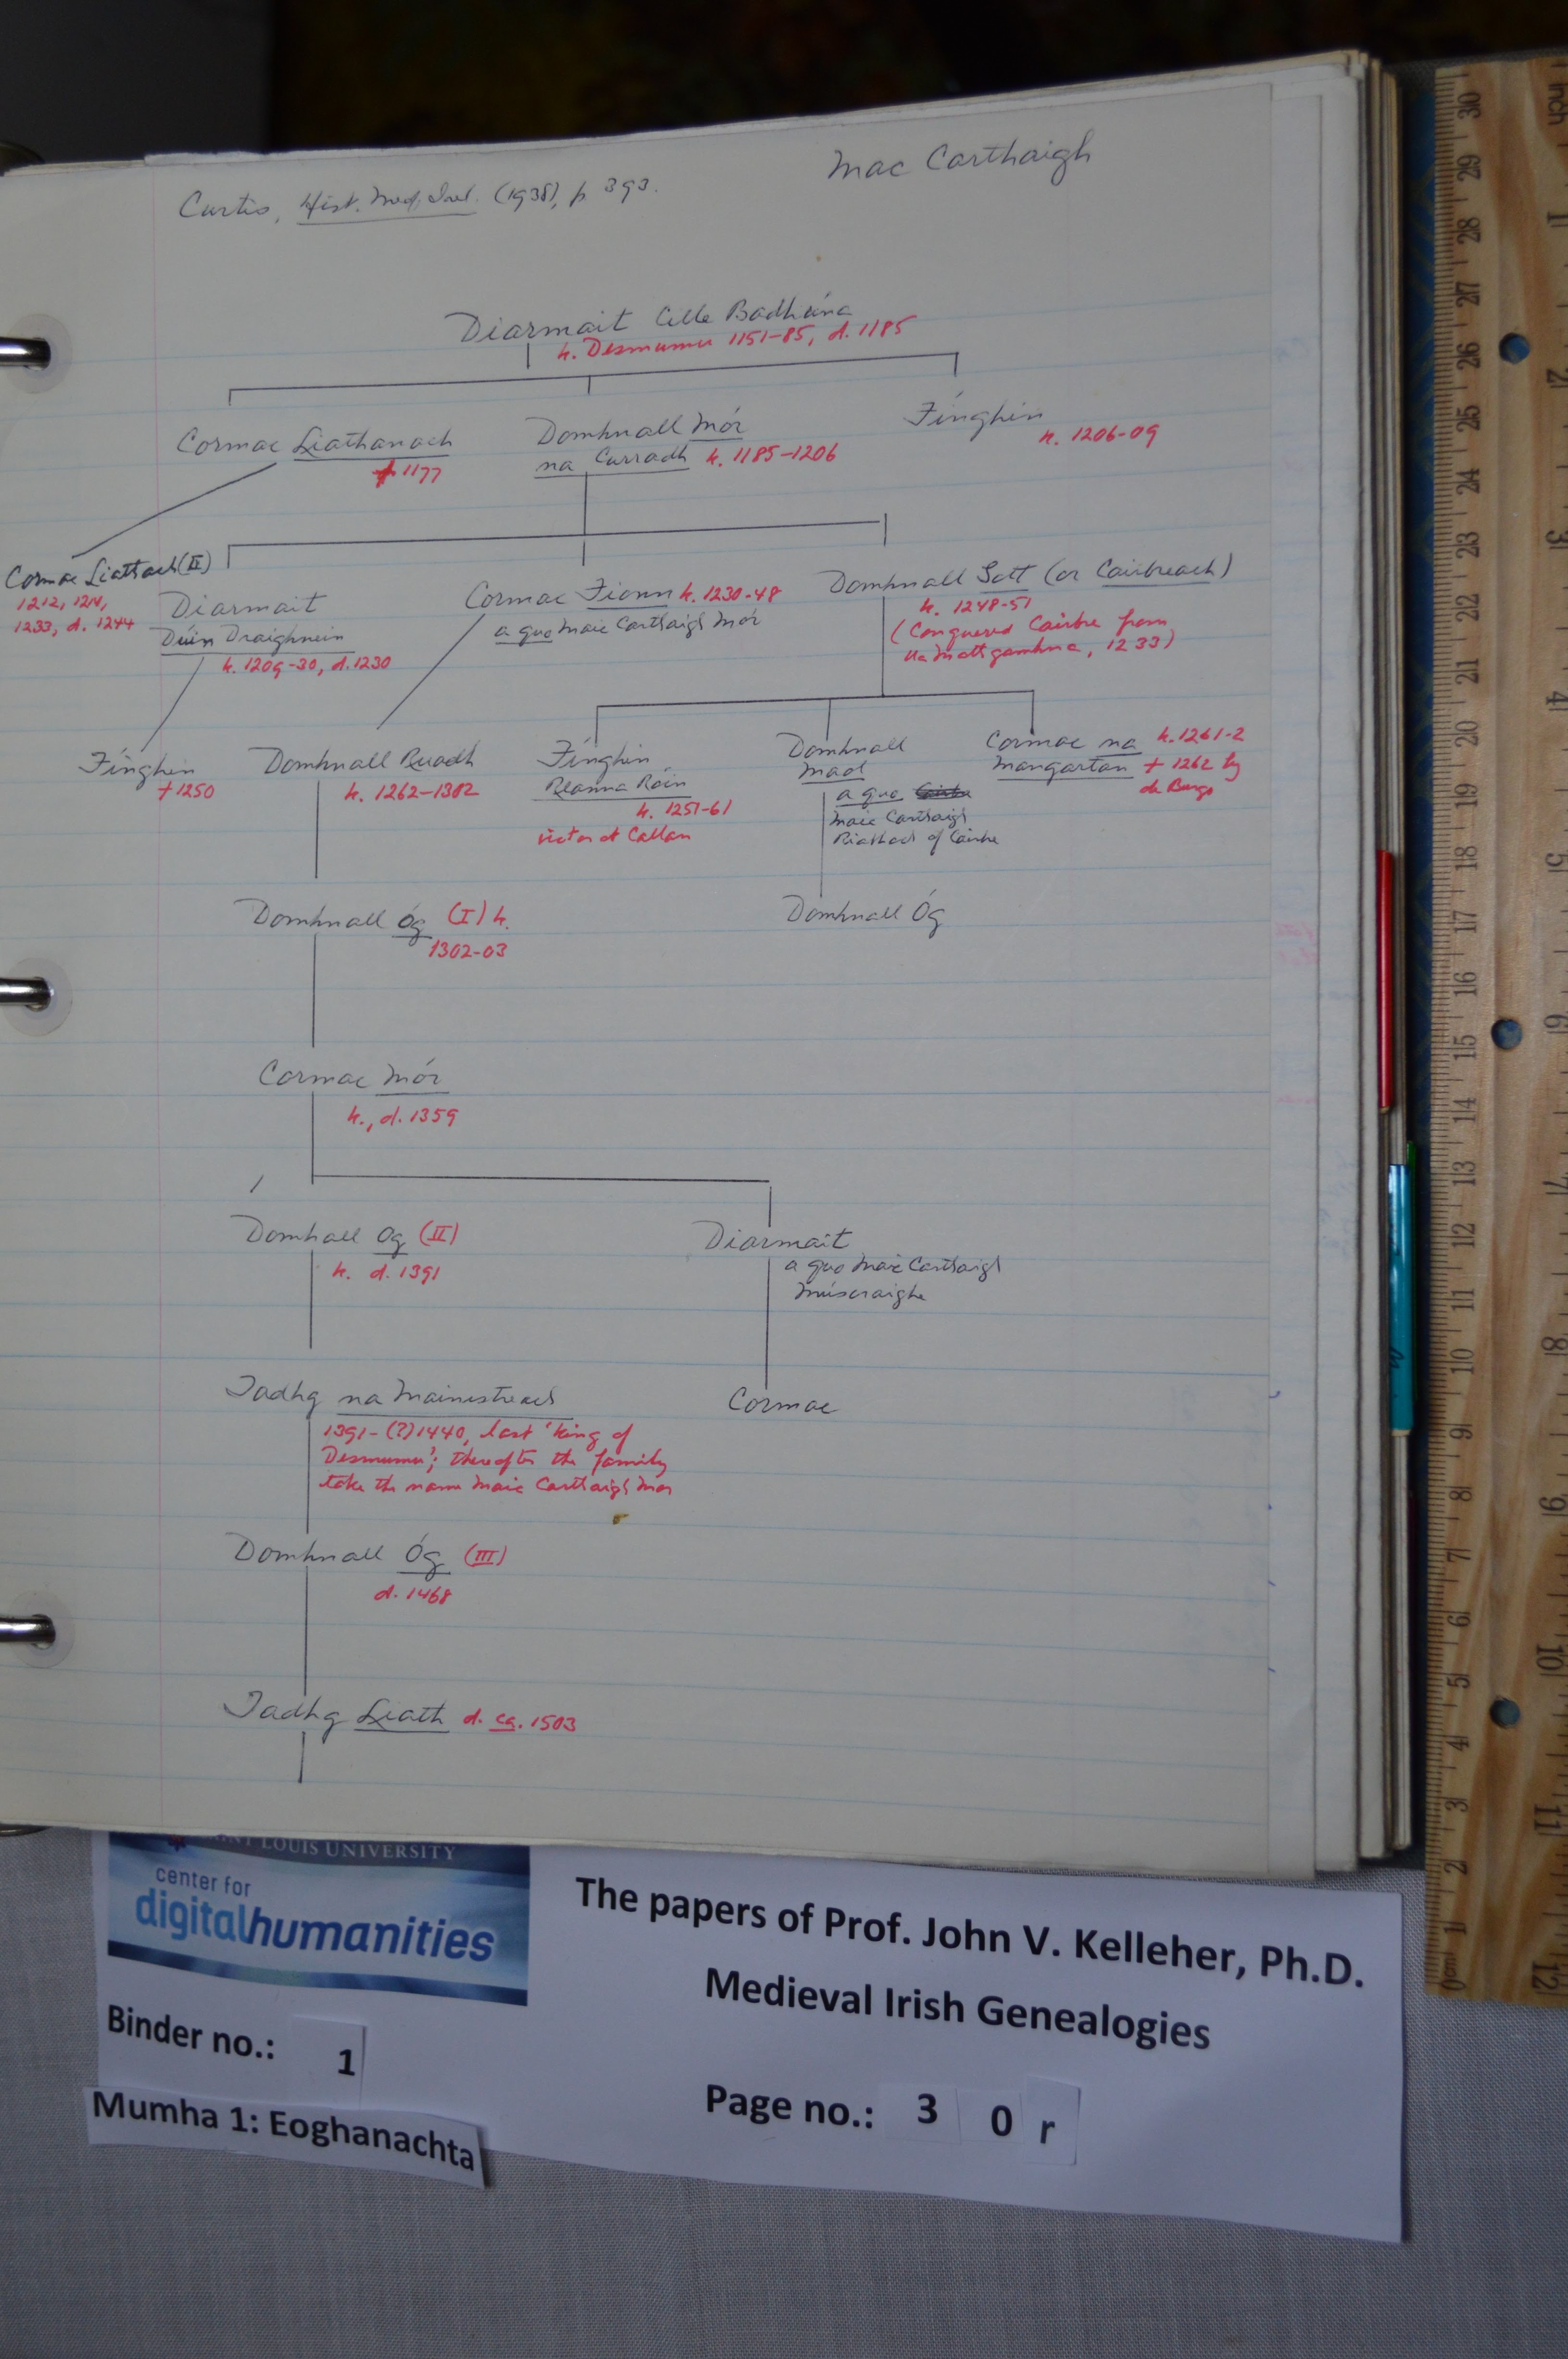 Mac Carthaigh
Curtis, Hist. Med. Irel. (1938), p 393.
Diarmait Cille Badhúna
k. Desmumu 1151-85, d. 1185
Cormac Liathanach
+ 1177
Domhnall Mór
na Curradh k. 1185-1206
Fínghin
k. 1206-09
Cormac Liathach (II)
1212, 1214,
1233, d. 1244
Diarmait
Dúin Draighnein
k. 1209-30, d. 1230
Cormac Fionn k. 1230-48
a quo Maic Carthaigh Mór
Domhnall Gott (or Cairbreach)
k. 1248-51
(Conquered Cairbre from
Ua Mathgamhna, 1233)
Fínghin
+ 1250
Domhnall Ruadh
k. 1262-1302
Fínghin
Reanna Róin
k. 1251-61
victor at Callan
Domhnall
Maol
a quo
Maic Carthaigh
Riabhach of Cairbre
Cormac na
Mangartan
k. 1261-2
+ 1262 by
de Burgo
Domhnall Óg (I) k.
1302-03
Domhnall Óg
Cormac Mór
k., d. 1359
Domhall Og (II)
k. d. 1391
Diarmait
a quo Maic Carthaigh
Múscraighe
Tadhg na Mainistreach
1391-(?)1440, last 'king of
Desmumu'; thereafter the family
take the name Maic Carthaigh Mór
Cormac
Domhnall Óg (III)
d. 1468
Tadhg Liath d. ca. 1503
SAINT LOUIS UNIVERSITY
center for
digitalhumanities
The papers of Prof. John V. Kelleher, Ph.D.
Medieval Irish Genealogies
Binder no.: 1
Page no.: 3 0 r
Mumha 1: Eoghanachta